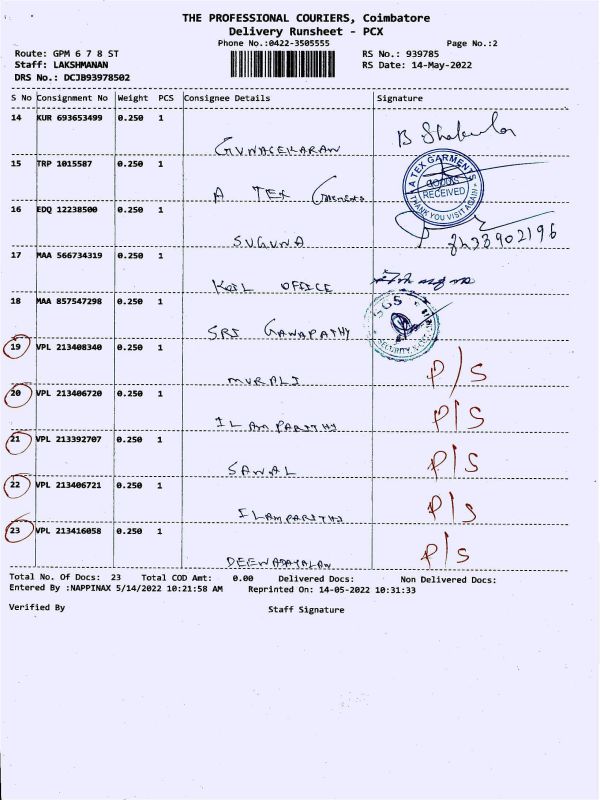 THE PROFESSIONAL COURIERS, Coimbatore
Delivery Runsheet - PCX
Phone No.:0422-3505555 Page No.:2
Route: GPM 6 7 8 ST RS No.: 939785
Staff: LAKSHMANAN RS Date: 14-May-2022
DRS No.: DCJB93978502
S No Consignment No Weight PCS Consignee Details Signature
14 KUR 693653499 0.250 1
GUNASEKARAN
15 TRP 1015587 0.250 1
A TEX Garments
A TEX GARMENTS
GOODS
RECEIVED
THANK YOU VISIT AGAIN
16 EDQ 12238500 0.250 1
SUGUNA
17 MAA 566734319 0.250 1
OFFICE
18 MAA 857547298 0.250 1
SRI GANAPATHY
SGS
SECURITY
19 VPL 213408340 0.250 1
MURALI P/S
20 VPL 213406720 0.250 1
ILAMPARITHI P/S
21 VPL 213392707 0.250 1
SAWAL P/S
22 VPL 213406721 0.250 1
ILAMPARITHI P/S
23 VPL 213416058 0.250 1
P/S
Total No. Of Docs: 23 Total COD Amt: 0.00 Delivered Docs: Non Delivered Docs:
Entered By :NAPPINAX 5/14/2022 10:21:58 AM Reprinted On: 14-05-2022 10:31:33
Verified By Staff Signature